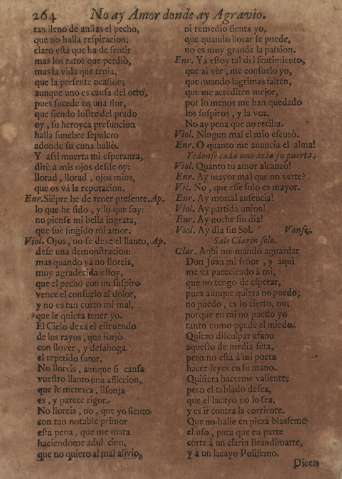 264 No ay Amor donde ay Agravio.
tan lleno de ansias el pecho,
que no halla respiracion;
claro està que ha de sentir
mas los ratos que perdiò,
mas la vida que tenia,
que la presente ocasion,
aunque uno es causa del otro,
pues sucede en una flor,
que siendo lustre del prado
oy, su heroyca presuncion
halla funebre sepulcro
adonde su cuna hallò.
Y assi muerta mi esperanza,
dirè à mis ojos desde oy:
llorad, llorad, ojos mios,
que os và la reputacion.
Enr. Siẽpre he de tener presente Ap.
lo que he sido, y lo que soy;
no piense mi bella ingrata,
que fue fingido mi amor.
Viol. Ojos, no se dexe el llanto, Ap.
dese una demonstracion:
mas quando ya no lloreis,
muy agradecida estoy,
que el pecho con un suspiro
vence el consuelo al dolor,
y no es tan corto mi mal,
que le quiera tener yo.
El Cielo dexa el estruendo
de los rayos, que
con llover, y desahoga
el repetido furor.
No lloreis, aunque si causa
vuestro llanto una afliccion,
que le merezca, lisonja
es, y parece rigor.
No lloreis, no, que yo siento
con tan notable primor
esta pena, que me mata
haciendome adulacion,
que no quiero al mal alivio,
ni remedio siento yo,
que quando llorar se puede,
no es muy grande la passion.
Enr. Ya estoy tal del sentimiento,
que al vèr, me consuelo yo,
que quando lagrimas falten,
que me acrediten mejor,
por lo menos me han quedado
los suspiros, y la voz.
No ay pena que no reciba.
Viol. Ningun mal el mio escusò.
Enr. O quanto me anuncia el alma!
Yendose cada uno azia su puerta.
Viol. Quanto tu amor alcanzò!
Enr. Ay mayor mal que no verte?
Vi. No, que esse solo es mayor.
Enr. Ay mortal ausencia!
Viol. Ay partida union!
Enr. Ay noche sin dia!
Viol. Ay dia sin Sol. Vanse.
Sale Clarin solo.
Clar. Aqui me mandò aguardar
Don Juan mi señor, y aqui
me ha parecido à mi,
que no tengo de esperar,
pues aunque quiera no puedo;
no puedo, es lo cierto, no,
porque en mi no puedo yo
tanto como puede el miedo.
Quiero disculpar usano
aquello de media seta,
pero no està à un poeta
hacer leyes en su mano.
Quisiera hacerme valiente;
pero el tablado desea,
que el lacayo no lo sea,
y es ir contra la corriente.
Que no halle en pieza blasfemo
el uso, para que en parte
corte à un clarin Brandimarte,
y à un lacayo Polifemo.
Dicen